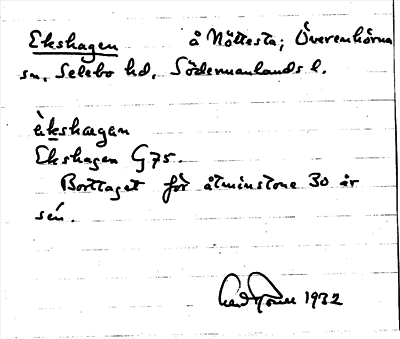 Ekshagen å Nöttesta; Överenhörna
sn, Selebo hd, Södermanlands l.
èkshagan
Ekshagen G75.
Borttaget för åtminstone 30 år
sén.
1932